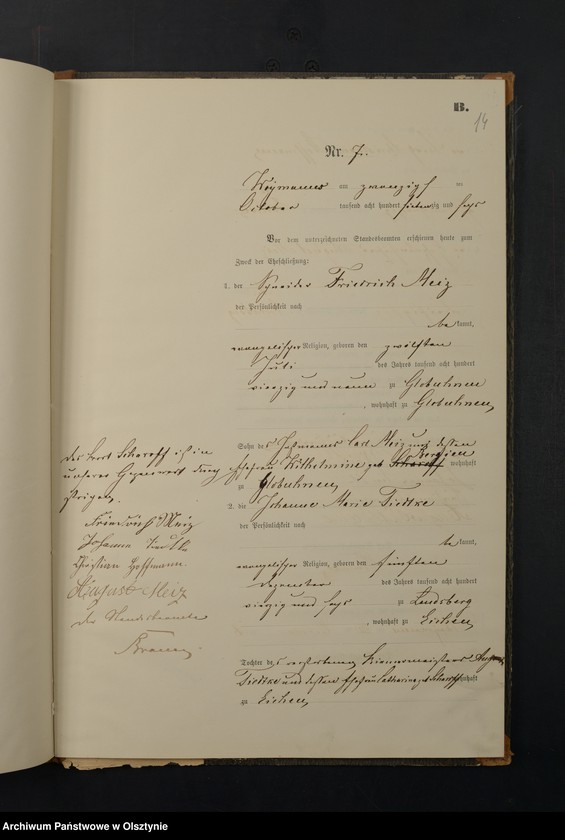 B.
14
Nr. 7.
am zwanzigsten
October tausend acht hundert siebenzig und sechs
Vor dem unterzeichneten Standesbeamten erschienen heute zum
Zweck der Eheschließung:
1. der Schneider Friedrich Meiz
der Persönlichkeit nach
be kannt,
evangelischer Religion, geboren den zwölften
Juli des Jahres tausend acht hundert
vierzig und neun zu Globuhnen
, wohnhaft zu Globuhnen,
Sohn des Carl Meiz und dessen
Ehefrau Wilhelmine geb Scharoff wohnhaft
zu Globuhnen,
2. die Johanne Marie Tiedtke
der Persönlichkeit nach
be kannt,
evangelischer Religion, geboren den fünften
Dezember des Jahres tausend acht hundert
vierzig und sechs zu Landsberg
, wohnhaft zu Eichen,
Tochter des verstorbenen August
Tiedtke und dessen Ehefrau Catharine geb Scharoff wohnhaft
zu Eichen,
das Wort Scharoff ist in
unserer Gegenwart durch
strichen.
Friedrich Meiz
Johanne Tiedtke
Christian Hoffmann
August Meiz
Der Standesbeamte
Archiwum Państwowe w Olsztynie